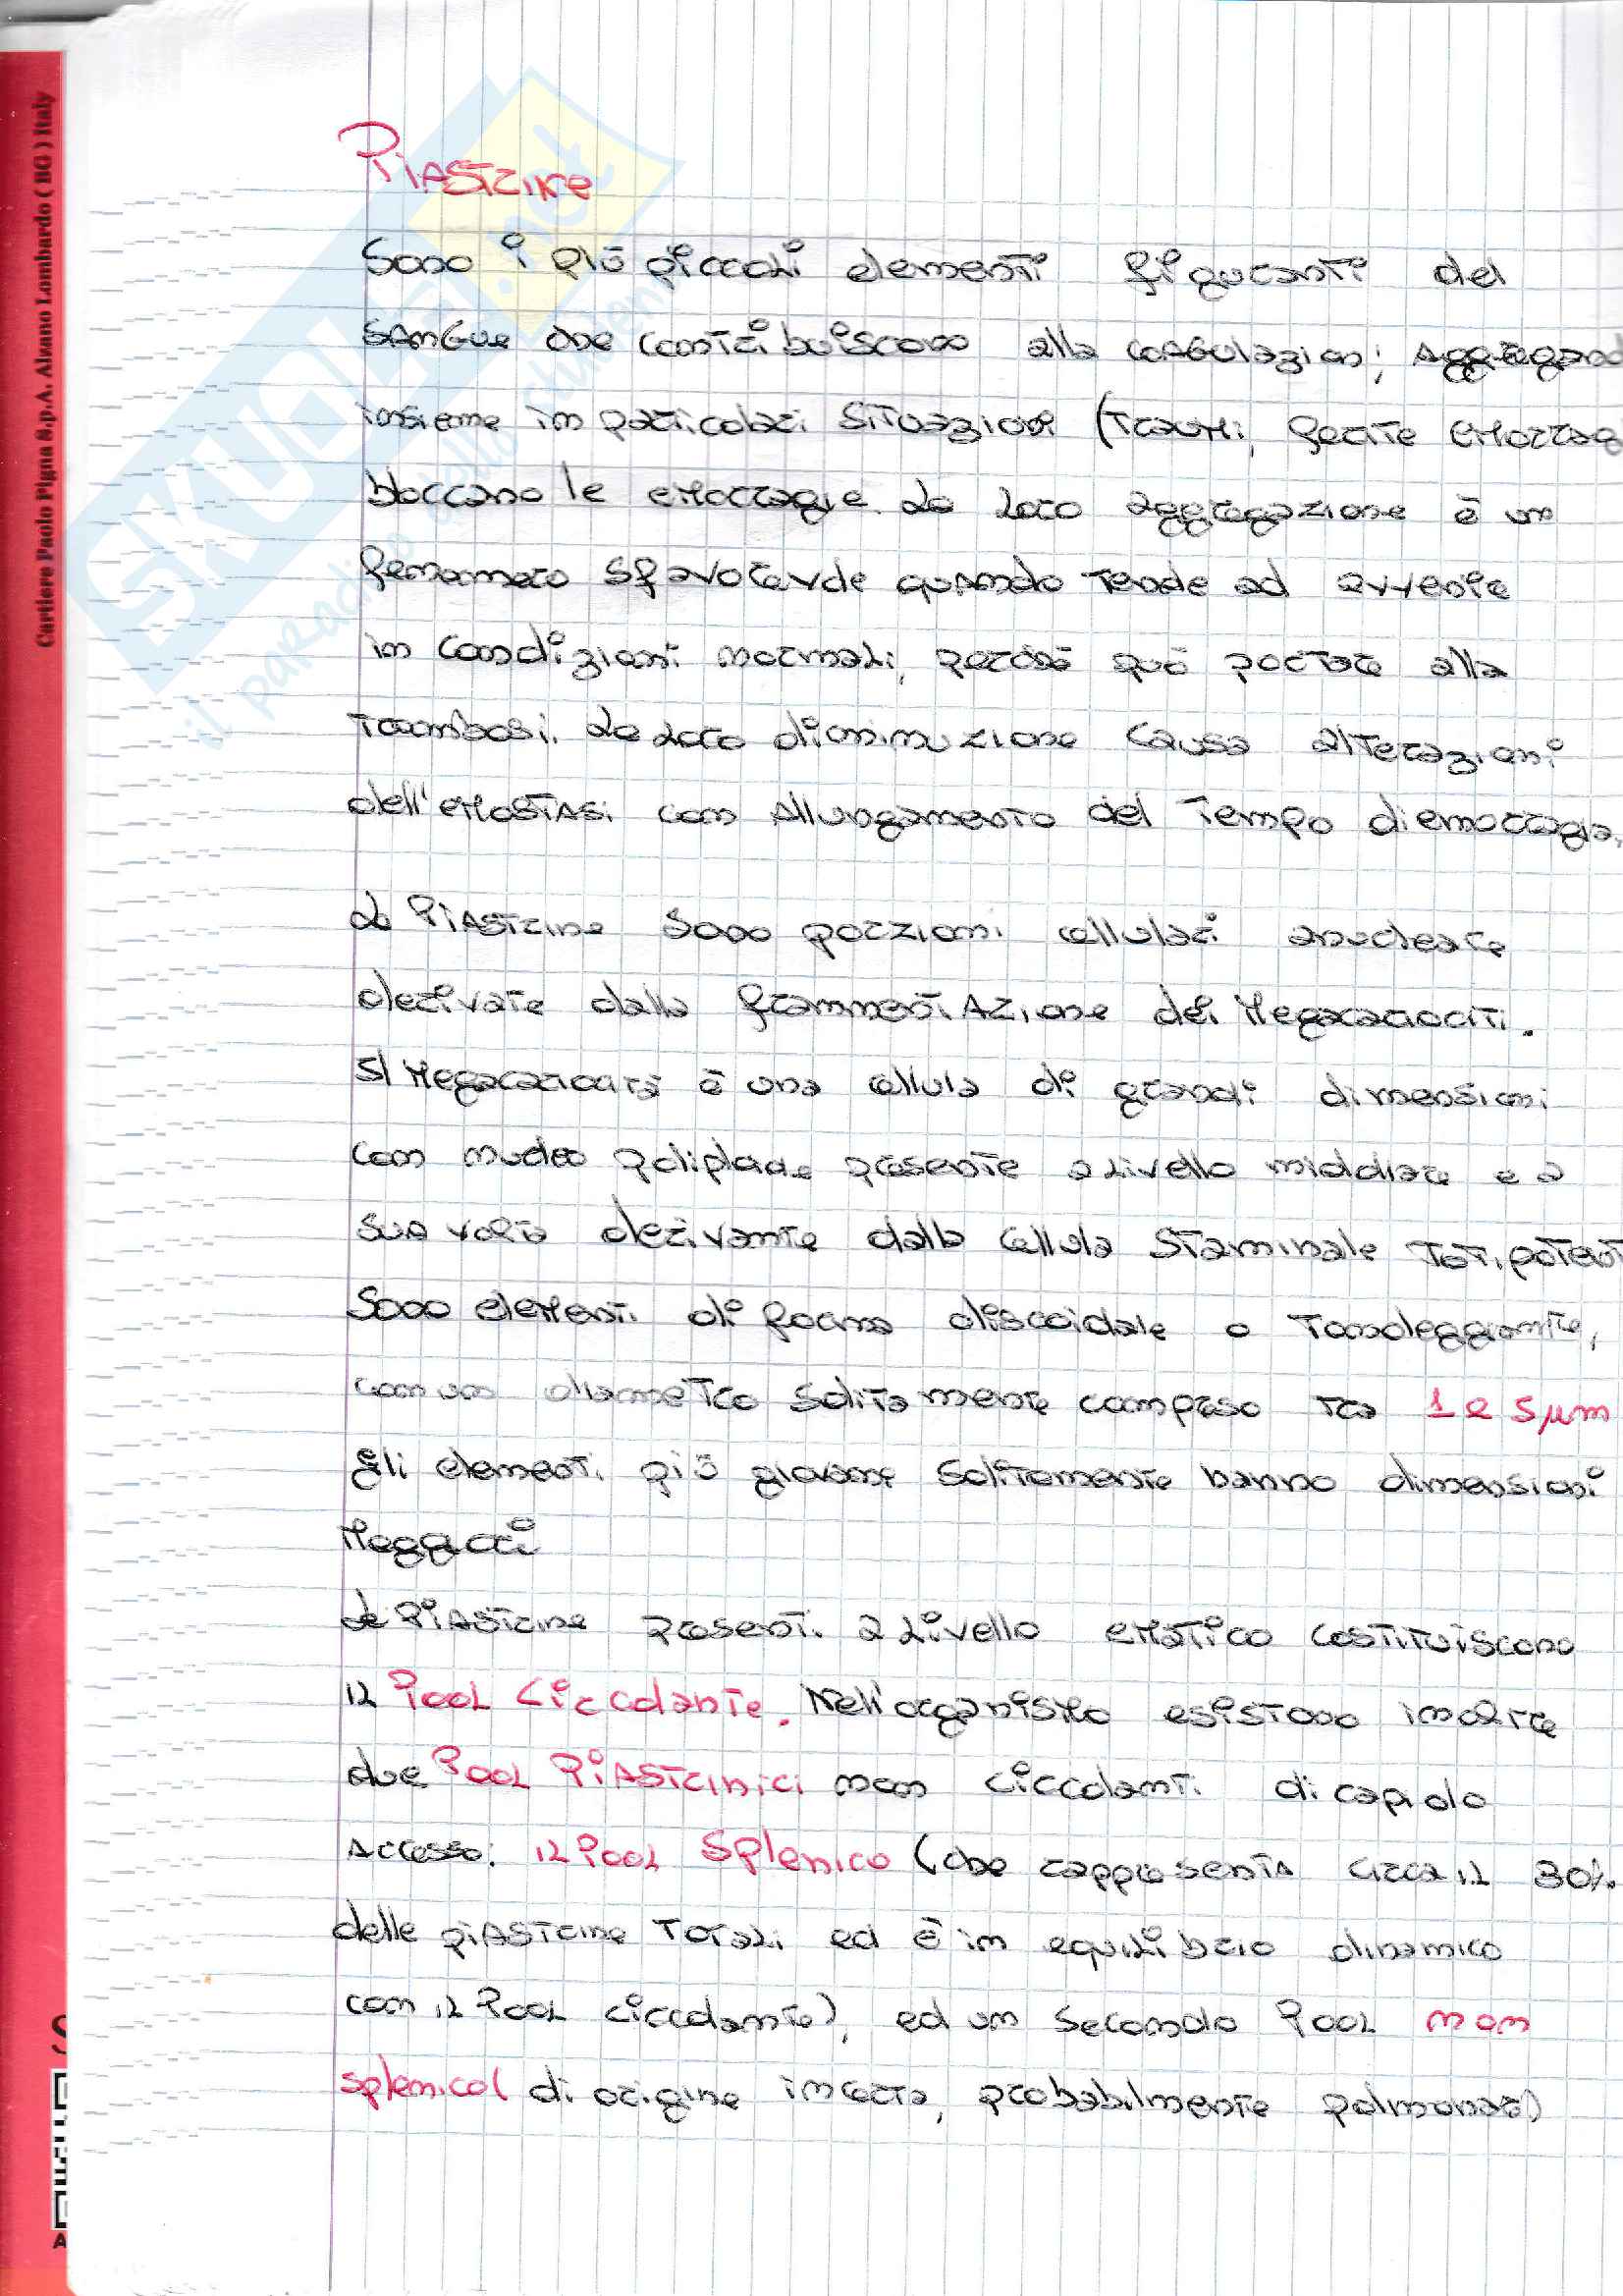 Cartiere Paolo Pigna S.p.A. Alzano Lombardo (BG) Italy
SKUOLA.net
il paradiso dello studente
Piastrine
Sono i più piccoli elementi figuranti del
sangue che contribuiscono alla coagulazioni, aggregand
insieme in particolari situazioni (traumi, ferite emorrag
bloccano le emorragie. La loro aggregazione è un
fenomeno sfavorevole quando tende ad avvenire
in condizioni normali, perché può portare alla
trombosi. La loro diminuzione causa alterazioni
dell'emostasi con allungamento del tempo di emorragia.
Le Piastrine sono porzioni cellulari anucleate
derivate dalla frammentazione dei Megacariociti.
Il Megacariocita è una cellula di grandi dimensioni
con nucleo poliploide presente a livello midollare e a
sua volta derivante dalla cellula staminale totipotent
Sono elementi di forma discoidale o tondeggiante,
con un diametro solitamente compreso tra 1 e 5 µm
gli elementi più giovani solitamente hanno dimensioni
Maggiori
Le Piastrine presenti a livello ematico costituiscono
il Pool Circolante. Nell'organismo esistono inoltre
due Pool Piastrinici non circolanti di rapido
accesso: il Pool Splenico (che rappresenta circa il 30%
delle piastrine totali ed è in equilibrio dinamico
con il Pool circolante), ed un secondo Pool non
splenico (di origine incerta, probabilmente polmonare)